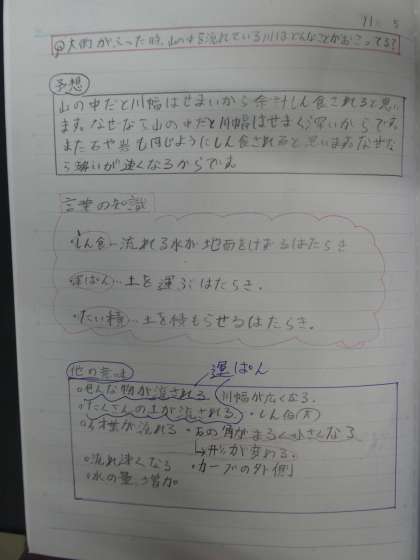 11 5
Q 大雨がふった時、山の中を流れている川はどんなことがおこってる?
予想
山の中だと川幅はせまいから余計しん食されると思い
ます。なぜなら山の中だと川幅はせまく深いからです。
また石や岩も同じようにしん食されると思います。なぜな
ら勢いが速くなるからです。
言葉の知識
・しん食…流れる水が地面をけずるはたらき
運ぱん…土を運ぶはたらき.
・たい積…土を積もらせるはたらき。
他の意味
運ぱん
○色んな物が流される 川幅が広くなる.
○たくさんの土が流される. ・しん食
が流れる ・石の角がまるく小さくなる
↳形が変わる.
○流れ速くなる ・カーブの外側
○水の量、増加